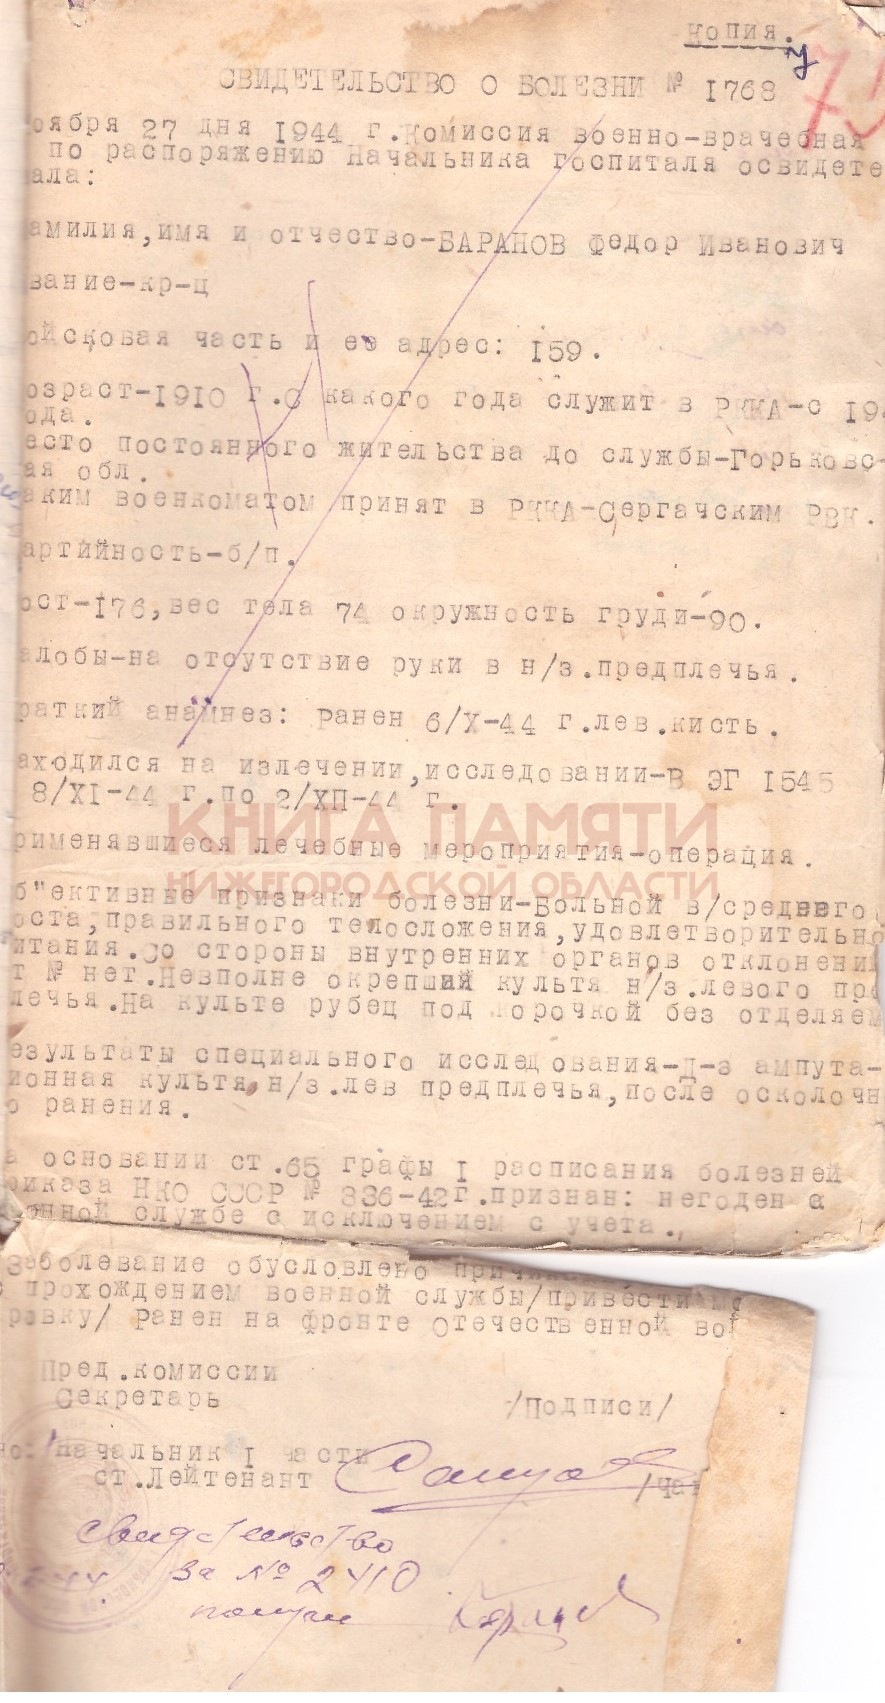 копия.
у
СВИДЕТЕЛЬСТВО О БОЛЕЗНИ № 1768
оября 27 дня 1944 г.Комиссия военно-врачебная
по распоряжению Начальника госпиталя освидете
ала:
амилия,имя и отчество-БАРАНОВ Федор Иванович
вание-кр-ц
ойсковая часть и ее адрес: 159.
озраст-1910 г.С какого года служит в РККА-с 194
ода.
есто постоянного жительства до службы-Горьковс-
ая обл.
аким военкоматом принят в РККА-Сергачским РВК.
артийность-б/п.
ост-176,вес тела 74 окружность груди-90.
алобы-на отсутствие руки в н/з.предплечья.
раткий анамнез: Ранен 6/X-44 г.лев.кисть.
аходился на излечении,исследовании-В ЭГ 1545
8/XI-44 г.по 2/ХП-44 г.
КНИГА ПАМЯТИ
рименявшиеся лечебные мероприятия-операция.
НИЖЕГОРОДСКОЙ ОБЛАСТИ
б"ективные признаки болезни-Больной в/среднего
оста,правильного телосложения,удовлетворительно
итания.Со стороны внутренних органов отклонений
т № нет.Невполне окрепший культя н/з.левого пре
лечья.На культе рубец под корочкой без отделяем
езультаты специального исследования-Д-з ампута-
ионная культя н/з.лев предплечья,после осколочн
о ранения.
а основании ст.65 графы I расписания болезней
риказа НКО СССР № 336-42г.признан: негоден с
оенной службе с исключением с учета.
Заболевание обусловлено
с прохождением военной службы/привести
ровку/ Ранен на фронте Отечественной вой
Пред.комиссии
Секретарь /Подписи/
но: Начальник I части
ст.Лейтенант /Ча
свидетельство
за № 2410
получил